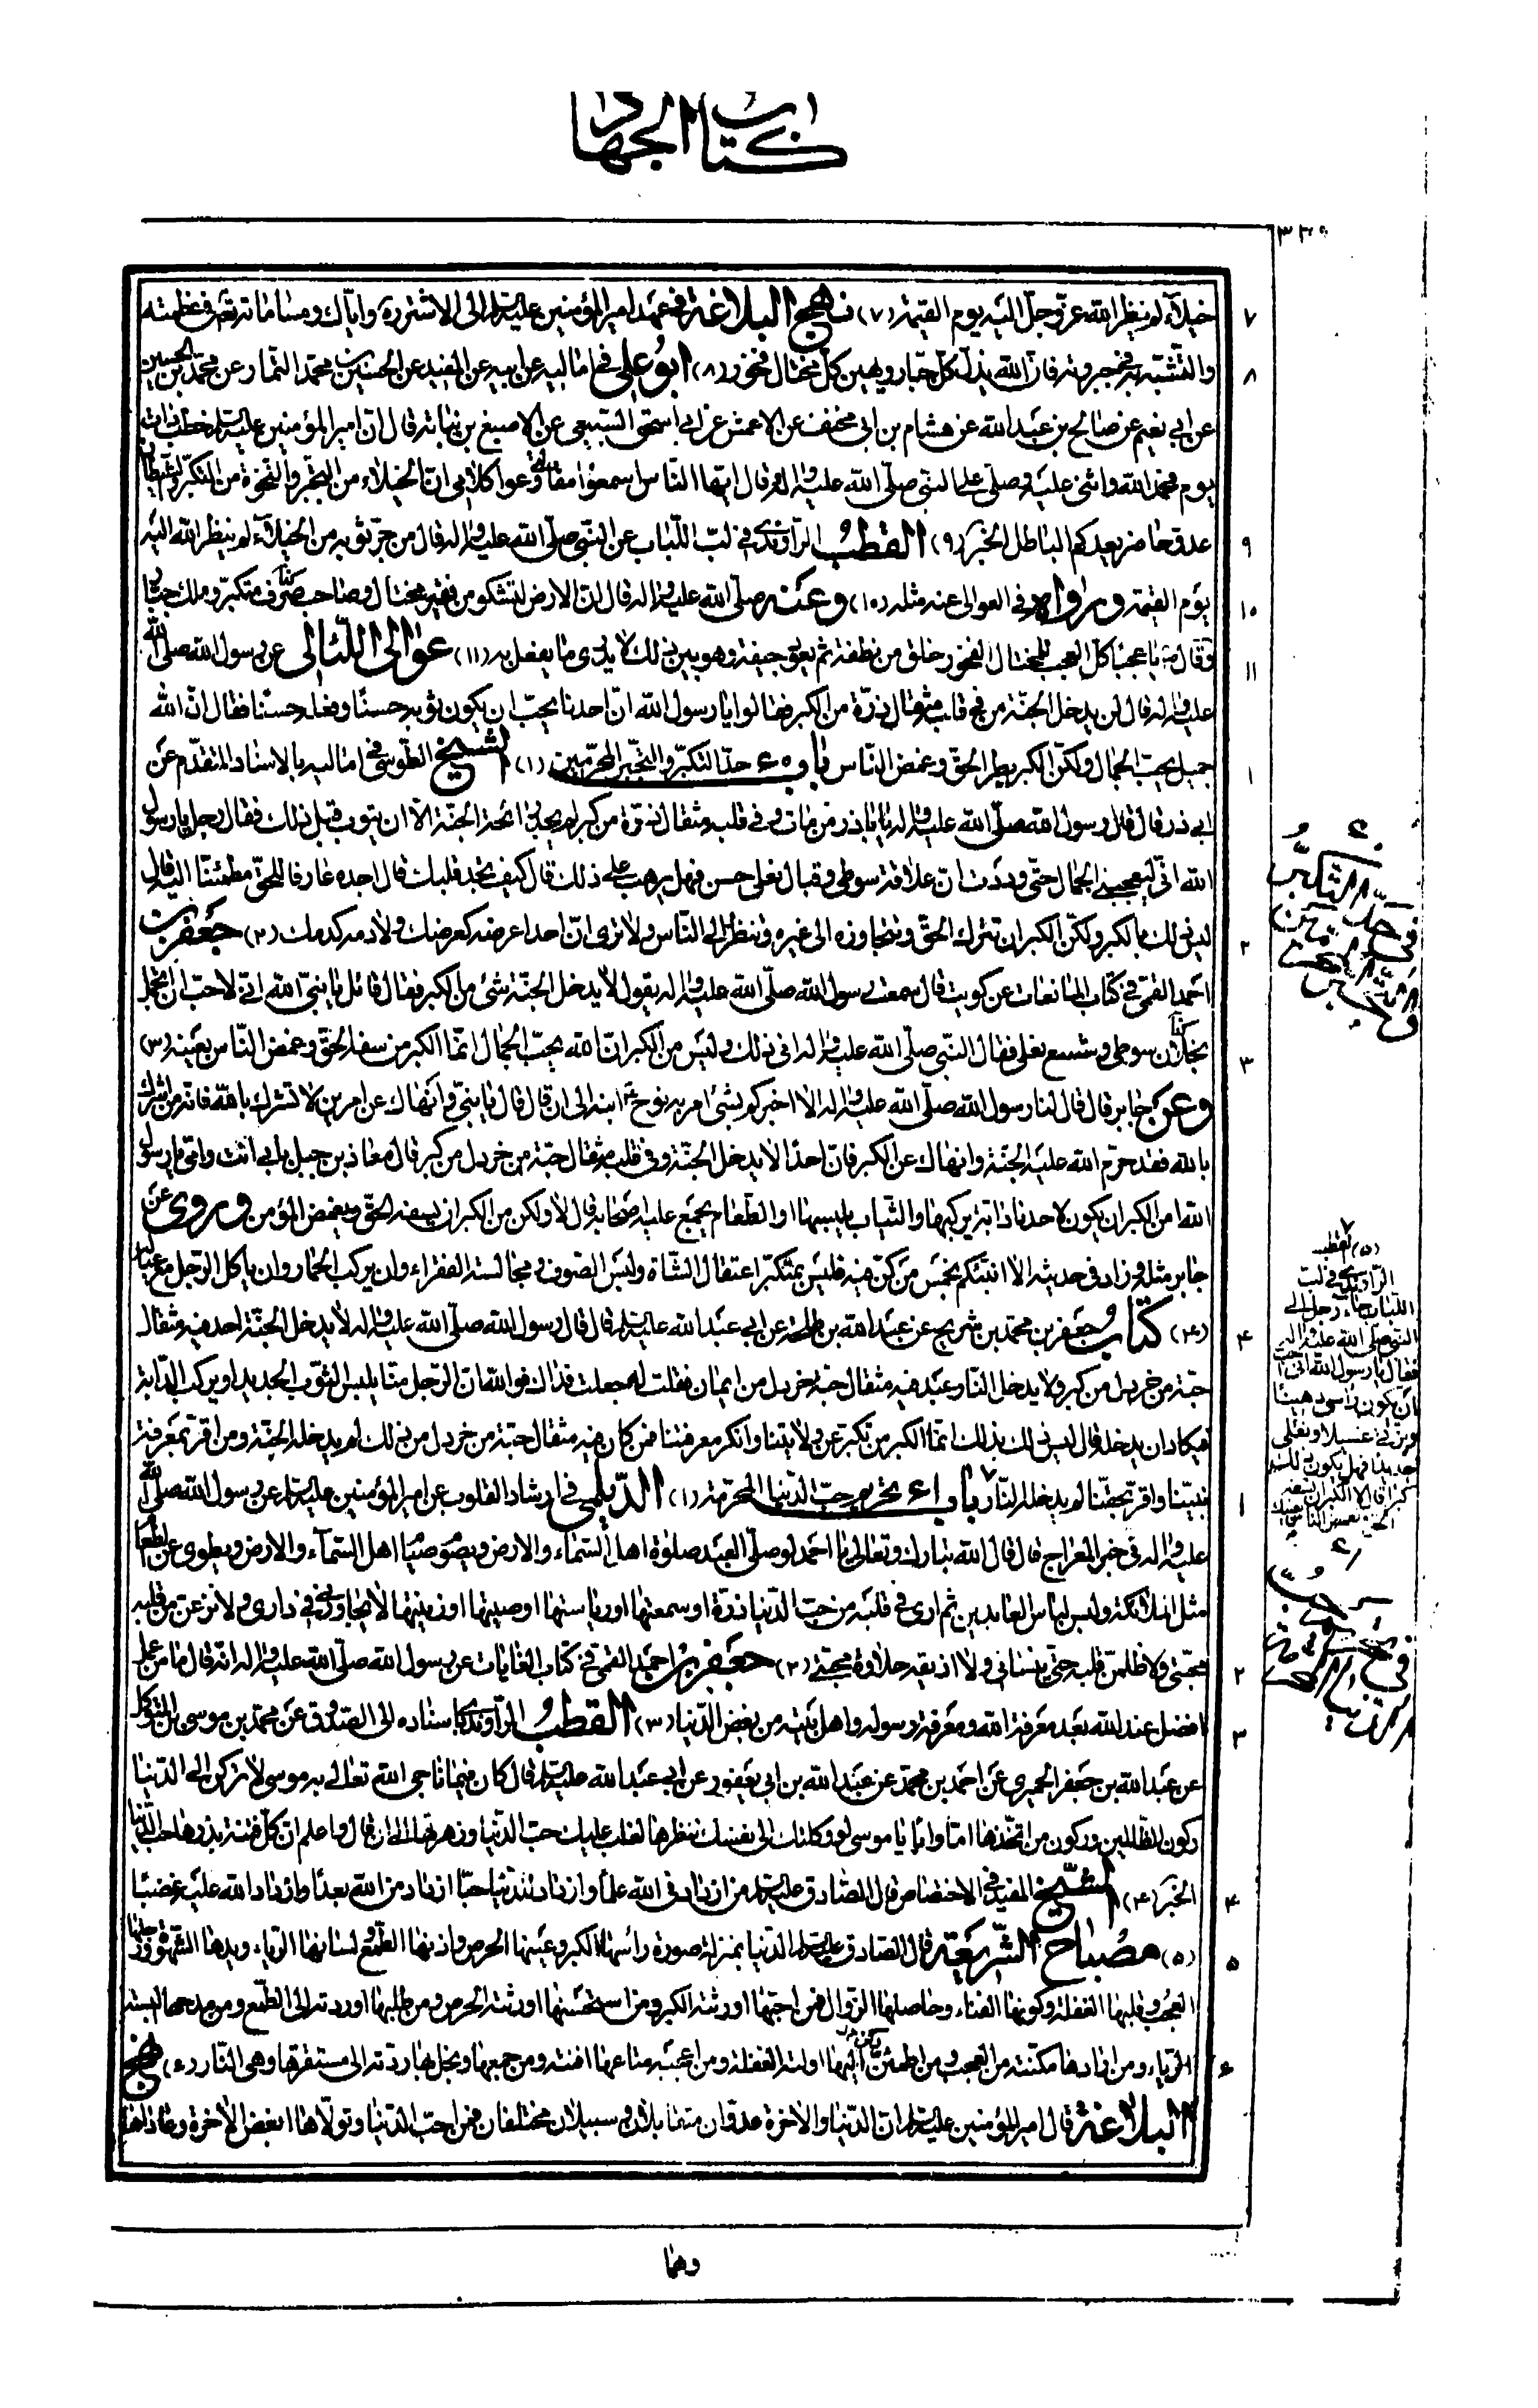 كتاب الجهاد
خيلاء لم ينظر الله عز وجل اليه يوم القيمة (٧) نهج البلاغة في عهد امير المؤمنين عليه السلم الى الاشتر ره واياك ومساماة الله في عظمته
والتشبه به في جبروته فان الله يذل كل جبار ويهين كل مختال فخور (٨) ابو علي في اماليه عن ابيه عن المفيد عن الحسين بن محمد التمار عن محمد بن الحسين
عن ابي نعيم عن صالح بن عبد الله عن هشام بن ابي مخنف عن الاعمش عن ابي اسحق السبيعي عن الاصبغ بن نباتة قال ان امير المؤمنين عليه السلم خطب ذات
يوم فحمد الله واثنى عليه وصلى على النبي صلى الله عليه واله ثم قال ايها الناس اسمعوا مقالتي وعوا كلامي ان الخيلاء من التجبر والنخوة من التكبر والشيطان
عدو حاضر يعدكم الباطل الخبر (٩) القطب الراوندي في لب اللباب عن النبي صلى الله عليه واله قال من جر ثوبه من الخيلاء لم ينظر الله اليه
يوم القيمة ورواه في العوالي عنه مثله (١٠) وعنه صلى الله عليه واله قال ان الارض لتشكو من فقير مختال وصاحب صرف كذا متكبر وملك جبار
وقال يا عجبا كل العجب للمختال الفخور خلق من نطفة ثم يعود جيفة وهو بين ذلك لا يدري ما يفعل به (١١) عوالي اللئالي عن رسول الله صلى الله
عليه واله قال لن يدخل الجنة من في قلبه مثقال ذرة من الكبر فقالوا يا رسول الله ان احدنا يحب ان يكون ثوبه حسنا وفعله حسنا فقال ان الله
جميل يحب الجمال ولكن الكبر بطر الحق وغمص الناس باب ٦٠ حد التكبر والتجبر المحرمين (١) الشيخ الطوسي في اماليه بالاسناد المتقدم عن
ابي ذر قال قال رسول الله صلى الله عليه واله يا ابا ذر من مات وفي قلبه مثقال ذرة من كبر لم يجد رائحة الجنة الا ان يتوب قبل ذلك فقال رجل يا رسول
الله اني ليعجبني الجمال حتى وددت ان علاقة سوطي وقبال نعلي حسن فهل يرهب على ذلك قال كيف تجد قلبك قال اجده عارفا للحق مطمئنا اليه قال
ليس ذلك بالكبر ولكن الكبر ان تترك الحق وتتجاوزه الى غيره وتنظر الى الناس ولا ترى ان احدا عرضه كعرضك ولا دمه كدمك (٢) جعفر بن
احمد القمي في كتاب المانعات عن كويت قال سمعت رسول الله صلى الله عليه واله يقول لا يدخل الجنة شئ من الكبر فقال قائل يا نبي الله اني لاحب ان اتجمل
بجلان كذا سوطي وشسع نعلي فقال النبي صلى الله عليه واله ان ذلك وليس من الكبر ان الله يحب الجمال انما الكبر من سفه الحق وغمص الناس بعينه (٣)
وعن جابر قال قال لنا رسول الله صلى الله عليه واله الا اخبركم بشئ امر به نوح ع ابنه الى ان قال قال يا بني وانهاك عن امرين لا تشرك بالله فانه من اشرك
بالله فقد حرم الله عليه الجنة وانهاك عن الكبر فان احدا لا يدخل الجنة وفي قلبه مثقال حبة من خردل من كبر قال معاذ بن جبل بابي انت وامي يا رسول
الله امن الكبر ان يكون لاحدنا دابة يركبها والثياب يلبسها او الطعام يجمع عليه اصحابه قال لا ولكن من الكبر ان يسفه الحق ويغمص المؤمن وروى عن
جابر مثله وزاد في حديثه الا انبئكم بخمس من كن فيه فليس بمتكبر اعتقال الشاة ولبس الصوف ومجالسة الفقراء وان يركب الحمار وان ياكل الرجل مع عياله
(٤) كتاب جعفر بن محمد بن شريح عن عبد الله بن طلحة عن ابي عبد الله عليه السلم قال قال رسول الله صلى الله عليه واله لا يدخل الجنة احد فيه مثقال
حبة من خردل من كبر ولا يدخل النار عبد فيه مثقال حبة خردل من ايمان فقلت له جعلت فداك فوالله ان الرجل منا يلبس الثوب الجديد او يركب الدابة
فيكاد ان يدخله قال ليس ذلك بذلك انما الكبر من تكبر عن ولايتنا وانكر معرفتنا فمن كان فيه مثقال حبة من خردل من ذلك لم يدخله الجنة ومن اقر بمعرفة
نبينا واقر بحقنا لم يدخله النار باب ٦١ تحريم حب الدنيا المحرمة (١) الديلمي في ارشاد القلوب عن امير المؤمنين عليه السلم عن رسول الله صلى الله
عليه واله في خبر المعراج قال قال الله تبارك وتعالى يا احمد لو صلى العبد صلوة اهل السماء والارض ويصوم صيام اهل السماء والارض ويطوى عن الطعام
مثل الملائكة ولبس لباس العابدين ثم ارى في قلبه من حب الدنيا ذرة او سمعتها او رياستها او صيتها او زينتها لا يجاورني في داري ولانزعن من قلبه
محبتي ولاظلمن قلبه حتى ينساني ولا اذيقه حلاوة محبتي (٢) جعفر بن احمد القمي في كتاب الغايات عن رسول الله صلى الله عليه واله انه قال ما من عمل
افضل عند الله بعد معرفة الله ومعرفة رسوله واهل بيته من بغض الدنيا (٣) القطب الراوندي باسناده الى الصدوق عن محمد بن موسى بن المتوكل
عن عبد الله بن جعفر الحميري عن احمد بن محمد عن عبد الله بن ابي يعفور عن ابي عبد الله عليه السلم قال كان فيما ناجى الله تعالى به موسى لا تركن الى الدنيا
ركون الظالمين وركون من اتخذها اما وابا يا موسى لو وكلتك الى نفسك تنظرها لغلب عليك حب الدنيا وزهرتها الى ان قال واعلم ان كل فتنة بذرها حب الدنيا
الخبر (٤) الشيخ المفيد في الاختصاص قال الصادق عليه السلم من ازداد في الله علما وازداد للدنيا حبا ازداد من الله بعدا وازداد الله عليه غضبا
(٥) مصباح الشريعة قال الصادق عليه السلم الدنيا بمنزلة صورة راسها الكبر وعينها الحرص واذنها الطمع ولسانها الرياء ويدها الشهوة ورجلها
العجب وقلبها الغفلة وكونها الفناء وحاصلها الزوال فمن احبها اورثته الكبر ومن استحسنها اورثته الحرص ومن طلبها اوردته الى الطمع ومن مدحها البسته
الرياء ومن ارادها مكنته من العجب ومن اطمئن اليها اولته الغفلة ومن اعجبه متاعها افنته ومن جمعها وبخل بها ردته الى مستقرها وهي النار (٦) نهج
البلاغة قال امير المؤمنين عليه السلم ان الدنيا والاخرة عدوان متقابلان وسبيلان مختلفان فمن احب الدنيا وتولاها ابغض الاخرة وعاداها
٧
٨
٩
١٠
١١
١
٢
٣
٤
١
٢
٣
٤
٥
٦
٦٠
في حد التكبر
(٥) القطب
الراوندي في لب
اللباب جاء رجل الى
النبي صلى الله عليه واله
فقال يا رسول الله اني احب
ان يكون راسي دهينا
وبزتي غسيلا ونعلي
جديدا فهل يكون ذلك
كبرا قال لا الكبر ان يسفه
الحق ويغمص الناس بعينك
٦١
في تحريم حب
الدنيا المحرمة
وهما